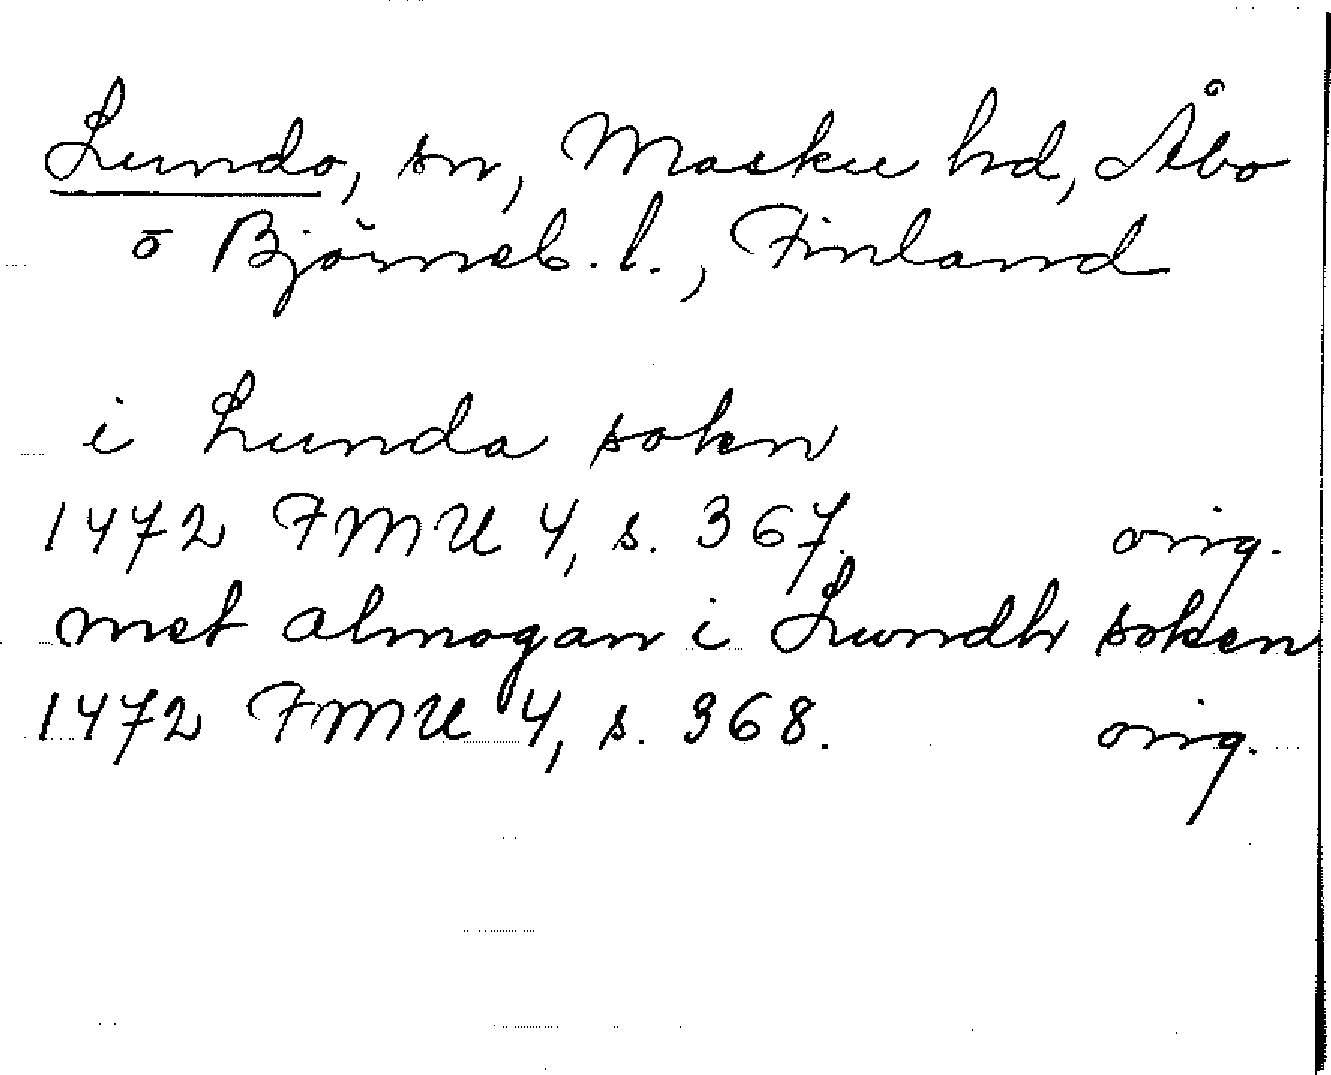 Lundo, sn, Masku hd, Åbo
o Björneb. l., Finland
i Lunda sokn
1472 FMU 4, s. 367. orig.
met almogan i Lundh soken
1472 FMU 4, s. 368. orig.